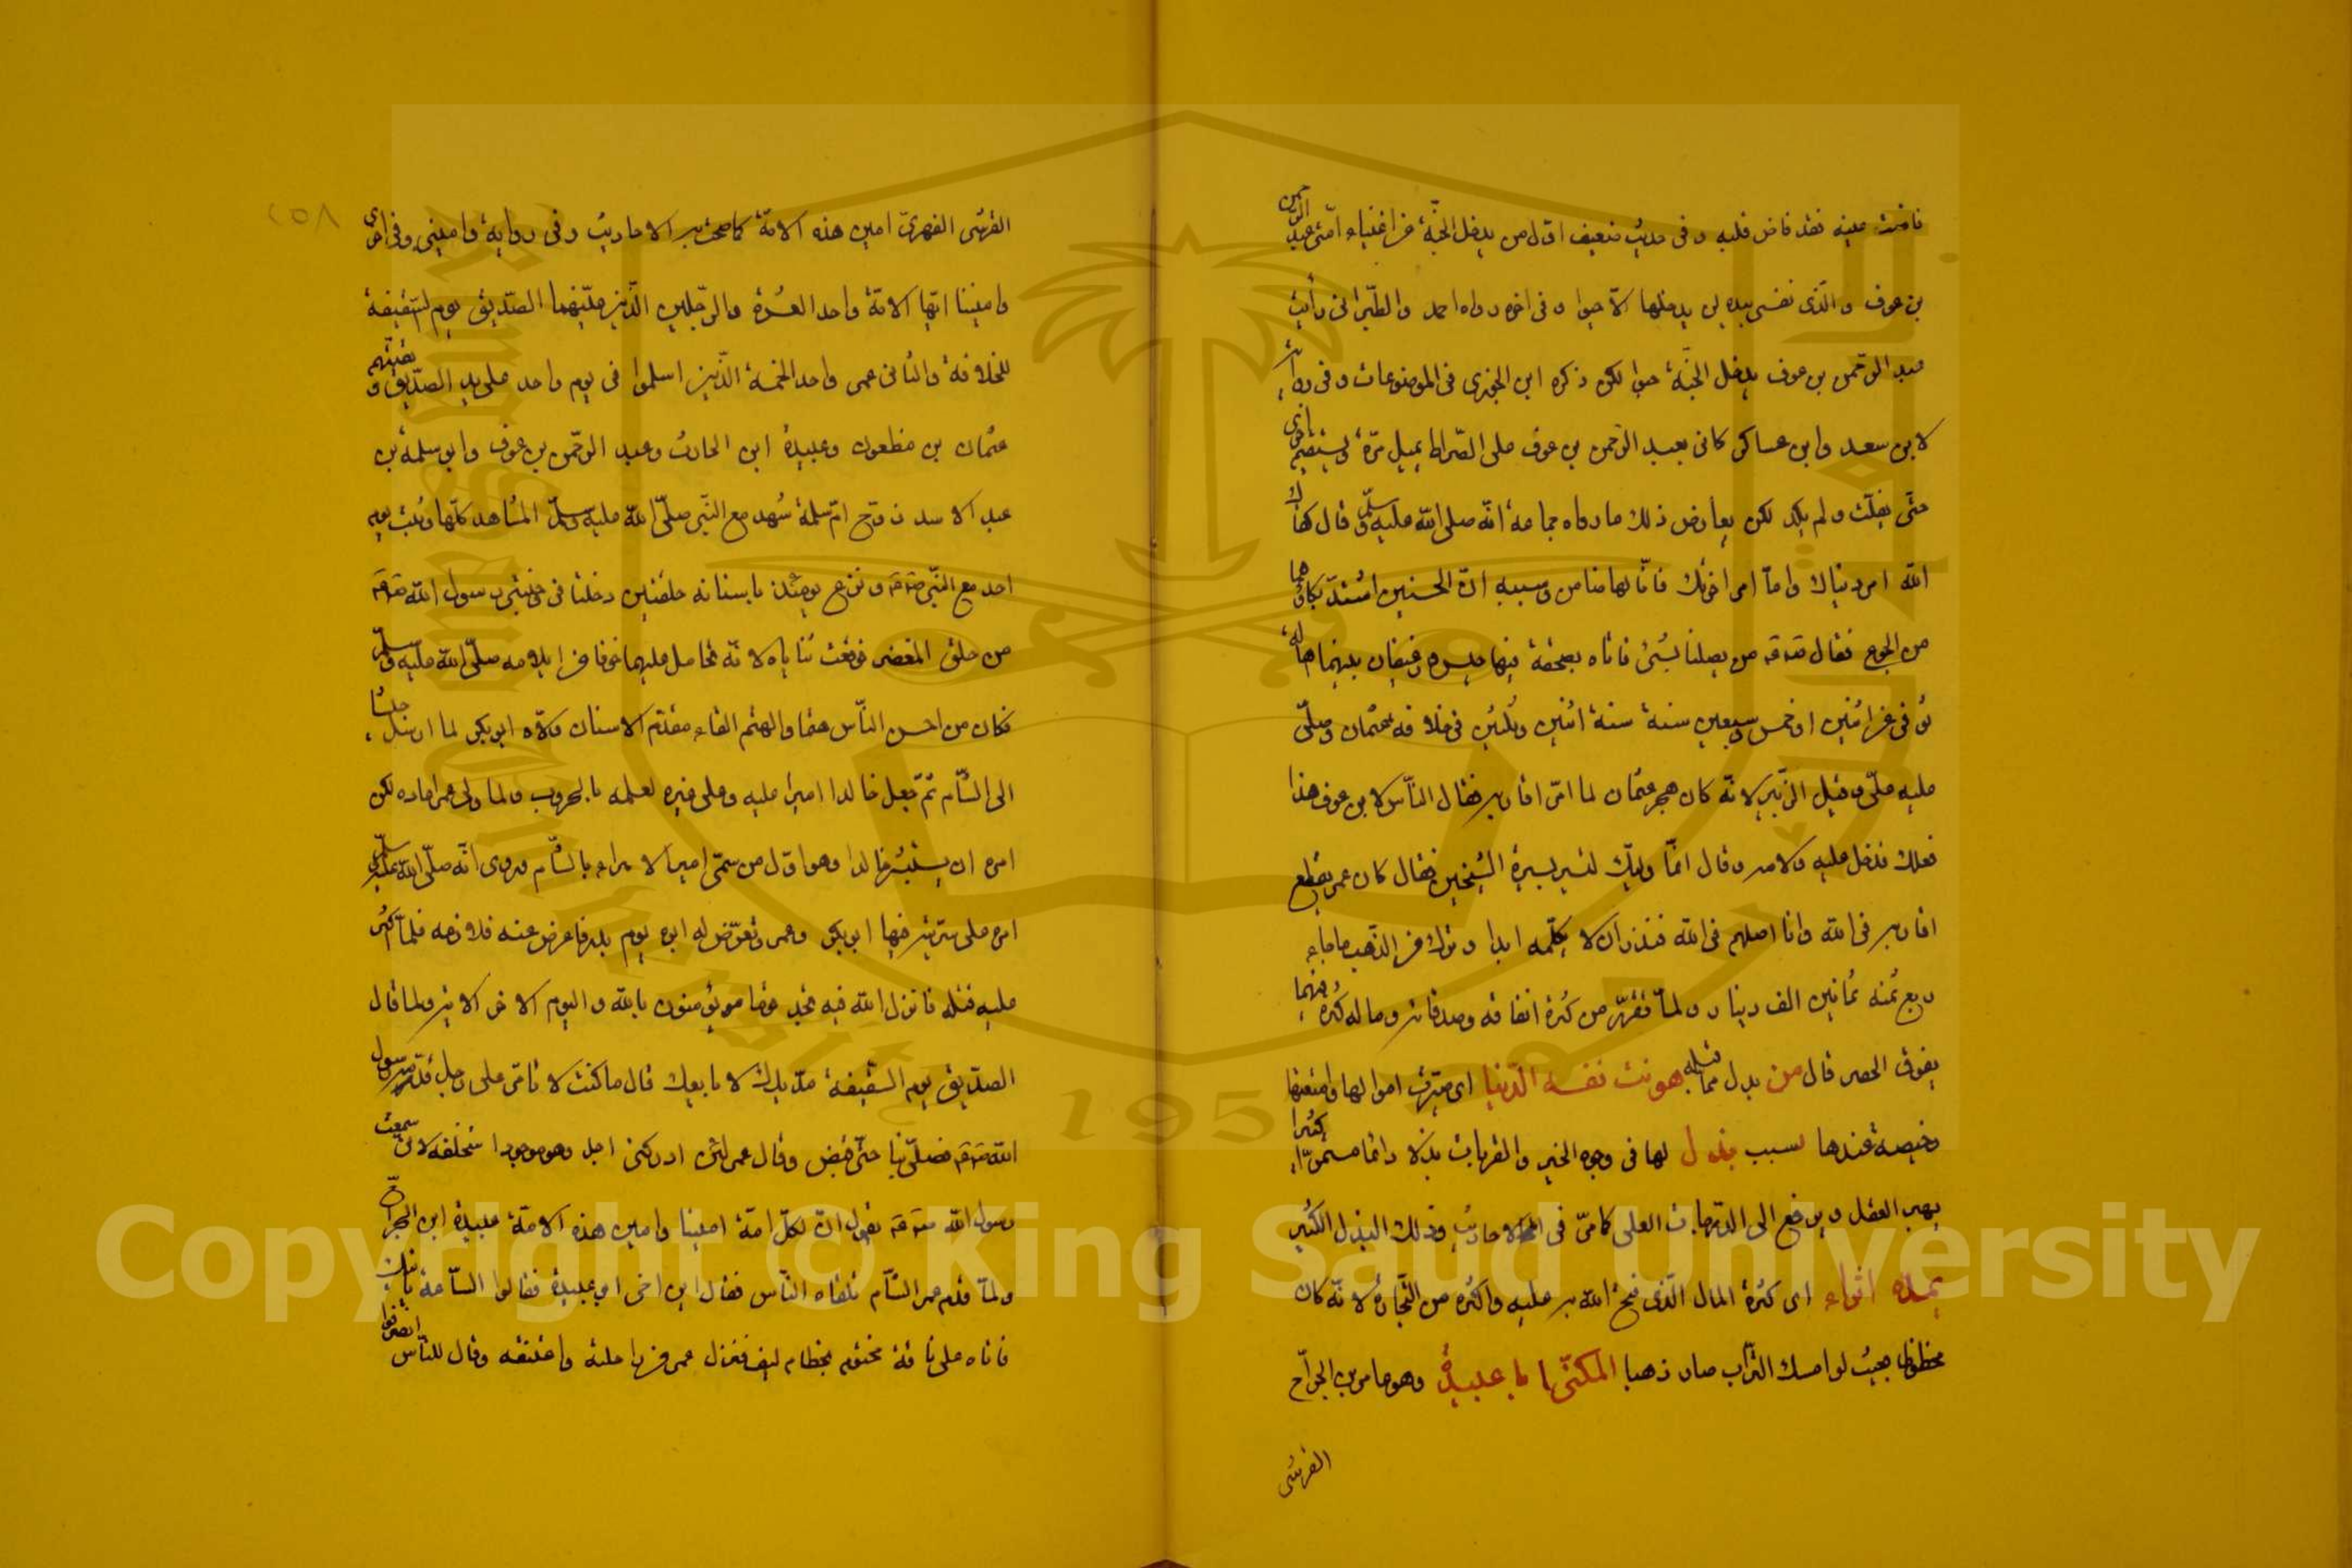 فاضت عينه فقد فاض قلبه وفى حديث ضعيف اوّل من يدخل الجنّة من اغنياء امّتى عبد الرّحمن
بن عوف والّذى نفسى بيده لن يدخلها الّا حبوا وفى اخره رواه احمد والطّبرانى رأيت
عبد الرّحمن بن عوف يدخل الجنّة حبوا لكن ذكره ابن الجوزى فى الموضوعات وفى رواية
لابن سعد وابن عساكر كانى بعبد الرّحمن بن عوف على الصّراط يميل مرّة ويستقيم اخرى
حتّى يفلت ولم يكد لكن يعارض ذلك ما رواه جماعة انّه صلى الله عليه وسلّم قال كفاك
الله امر دنياك وامّا امر اخرتك فانّا لها ضامن وسببه انّ الحسنين اشتدّ بكاؤهما
من الجوع فقال من يصلنا بشئ فاتاه بصحفة فيها حيس ورغيفان بينهما اهالة
توفى عن اثنين او خمس وسبعين سنة سنة اثنين وثلثين فى خلافة عثمان وصلّى
عليه علىّ وقيل الزّبير لانّه كان هجر عثمان لما امّر اقاربه فقال النّاس لابن عوف هذا
فعلك فدخل عليه ولامه وقال انّما وليّتك لتسير بسيرة الشّيخين فقال كان عمر يقطع
اقاربه فى الله وانا اصلهم فى الله فنذر ان لا يكلّمه ابدا وترك من الذّهب ما جاء
ربع ثمنه ثمانين الف دينار ولمّا تقرّر من كثرة انفاقه وصدقاته وماله كثرة فيهما
يفوق الحصر قال من بدل مما قبله هونت نفسه الدّنيا اى صيّرت اموالها وامتعتها
رخيصة عندها بسبب بذل لها فى وجوه الخير والقربات بذلا دائما مستمرّا كثيرا
يهب العقل ويرفع الى الدّرجات العلى كما مرّ فى الاحاديث وذلك البذل الكثير
يمدّه اثراء اى كثرة المال الّذى فتح الله به عليه واكثره من التّجارة لانّه كان
محظوظا بحيث لو امسك التّراب صار ذهبا المكنّى ابا عبيدة وهو عامر بن الجرّاح
القرشى
٢٥٨
القرشى الفهرىّ امين هذه الامّة كما صحّت به الاحاديث وفى رواية وامينى وفى اخرى
واميننا ايّها الامّة واحد العشرة والرّجلين الّذين عيّنهما الصّدّيق يوم السّقيفة
للخلافة والثّانى عمر واحد الخمسة الّذين اسلموا فى يوم واحد على يد الصّدّيق وبقيّتهم
عثمان بن مظعون وعبيدة ابن الحارث وعبد الرّحمن بن عوف وابو سلمة بن
عبد الاسد زوج امّ سلمة شهد مع النّبى صلّى الله عليه وسلّم المشاهد كلّها وثبت يوم
احد مع النّبى ونزع يومئذ باسنانه حلقتين دخلتا فى وجنتى رسول الله
من حلق المغفر فوقعت ثناياه لانّه تحامل عليهما خوفا من ايلامه صلّى الله عليه وسلّم
فكان من احسن النّاس هتما والهتم القاء مقدّم الاسنان ولّاه ابو بكر لما ارسل جيشا
الى الشّام ثمّ جعل خالدا اميرا عليه وعلى غيره لعلمه بالحروب ولما ولى عمر اعاده لكن
امره ان يستشير خالدا وهو اوّل من سمّى امير الامراء بالشّام وروى انّه صلّى الله عليه وسلّم
امره على سرّية فيها ابو بكر وعمر وتعرّض له ابوه يوم بدر فاعرض عنه فلازمه فلمّا اكثر
عليه قتله فانزل الله فيه لا تجد قوما يؤمنون بالله واليوم الاخر الاية ولما قال
الصدّيق يوم السّقيفة مدّ يدك لابايعك قال ما كنت لاتأمّر على رجل قدّمه رسول
الله فصلّى بنا حتّى قبض وقال عمر لئن ادركنى اجل وهو موجود استخلفه لانّى سمعت
رسول الله يقول انّ لكلّ امّة امينا وامين هذه الامّة عبيدة ابن الجرّاح
ولمّا قدم عمر الشّام تلقّاه النّاس فقال اين اخى ابو عبيدة فقالوا السّاعة يأتيك
فاتاه على ناقة مختوم بخطام ليف فنزل عمر من راحلته واعتنقه وقال للنّاس انصرفوا
Copyright © King Saud University
King Saud University
195